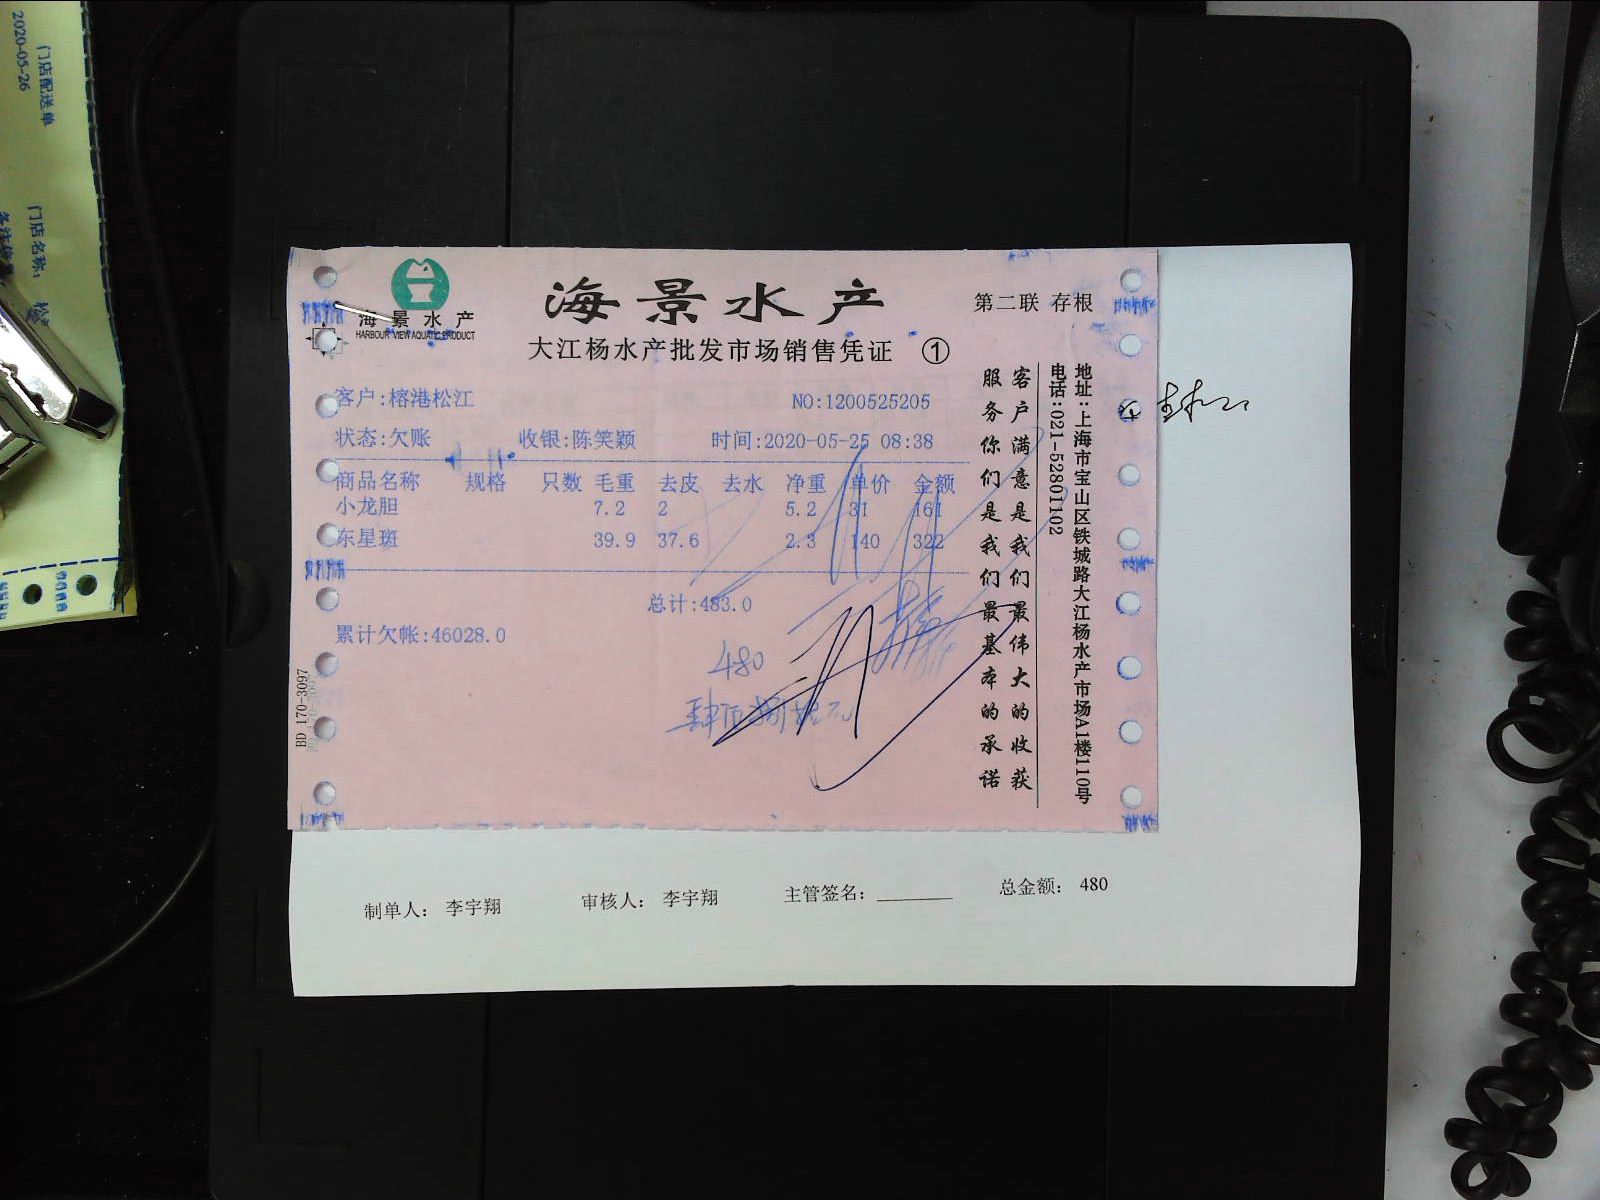 门店配送单
2020-05-26
门店名称: 松
海景水产
HARBOUR VIEW AQUATIC PRODUCT
海景水产
第二联 存根
大江杨水产批发市场销售凭证 ①
客户:榕港松江
NO:1200525205
状态:欠账 收银:陈笑颖 时间:2020-05-25 08:38
商品名称 规格 只数 毛重 去皮 去水 净重 单价 金额
小龙胆 7.2 2 5.2 31 161
东星斑 39.9 37.6 2.3 140 322
总计:483.0
累计欠帐:46028.0
480
肆佰捌拾元
客户满意是我们最伟大的收获
服务你们是我们最基本的承诺
地址:上海市宝山区铁城路大江杨水产市场A1楼110号
电话:021-52801102
BD 170-3097
制单人: 李宇翔 审核人: 李宇翔 主管签名: 总金额: 480